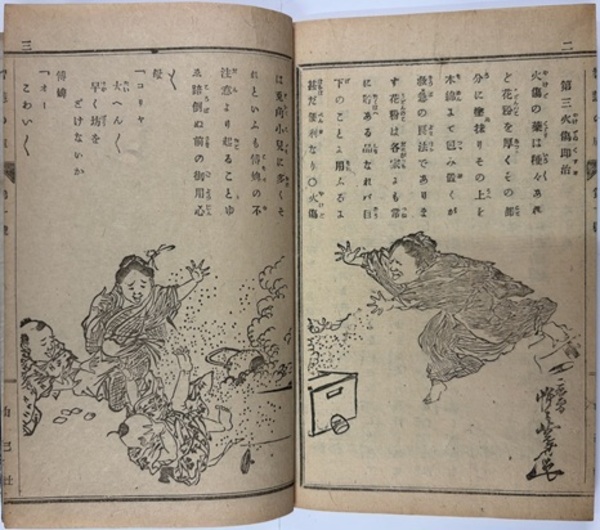 二
第三火傷即治
火傷の藥は種々あれ
ど花粉を厚くその部
分に塗抹りその上を
木綿にて包み置くが
救急の良法でありま
す花粉は各家にも常
に有る品なれバ目
下のことに用ふるに
甚だ便利なり○火傷
三
は兎角小兒に多くそ
れといふも傅婢の不
注意より起ることゆ
ゑ諸倒ぬ前の御用心
〱
母
「コリヤ
大へん〱
早く坊を
どけないか
傅婢
「オー
こわい〱